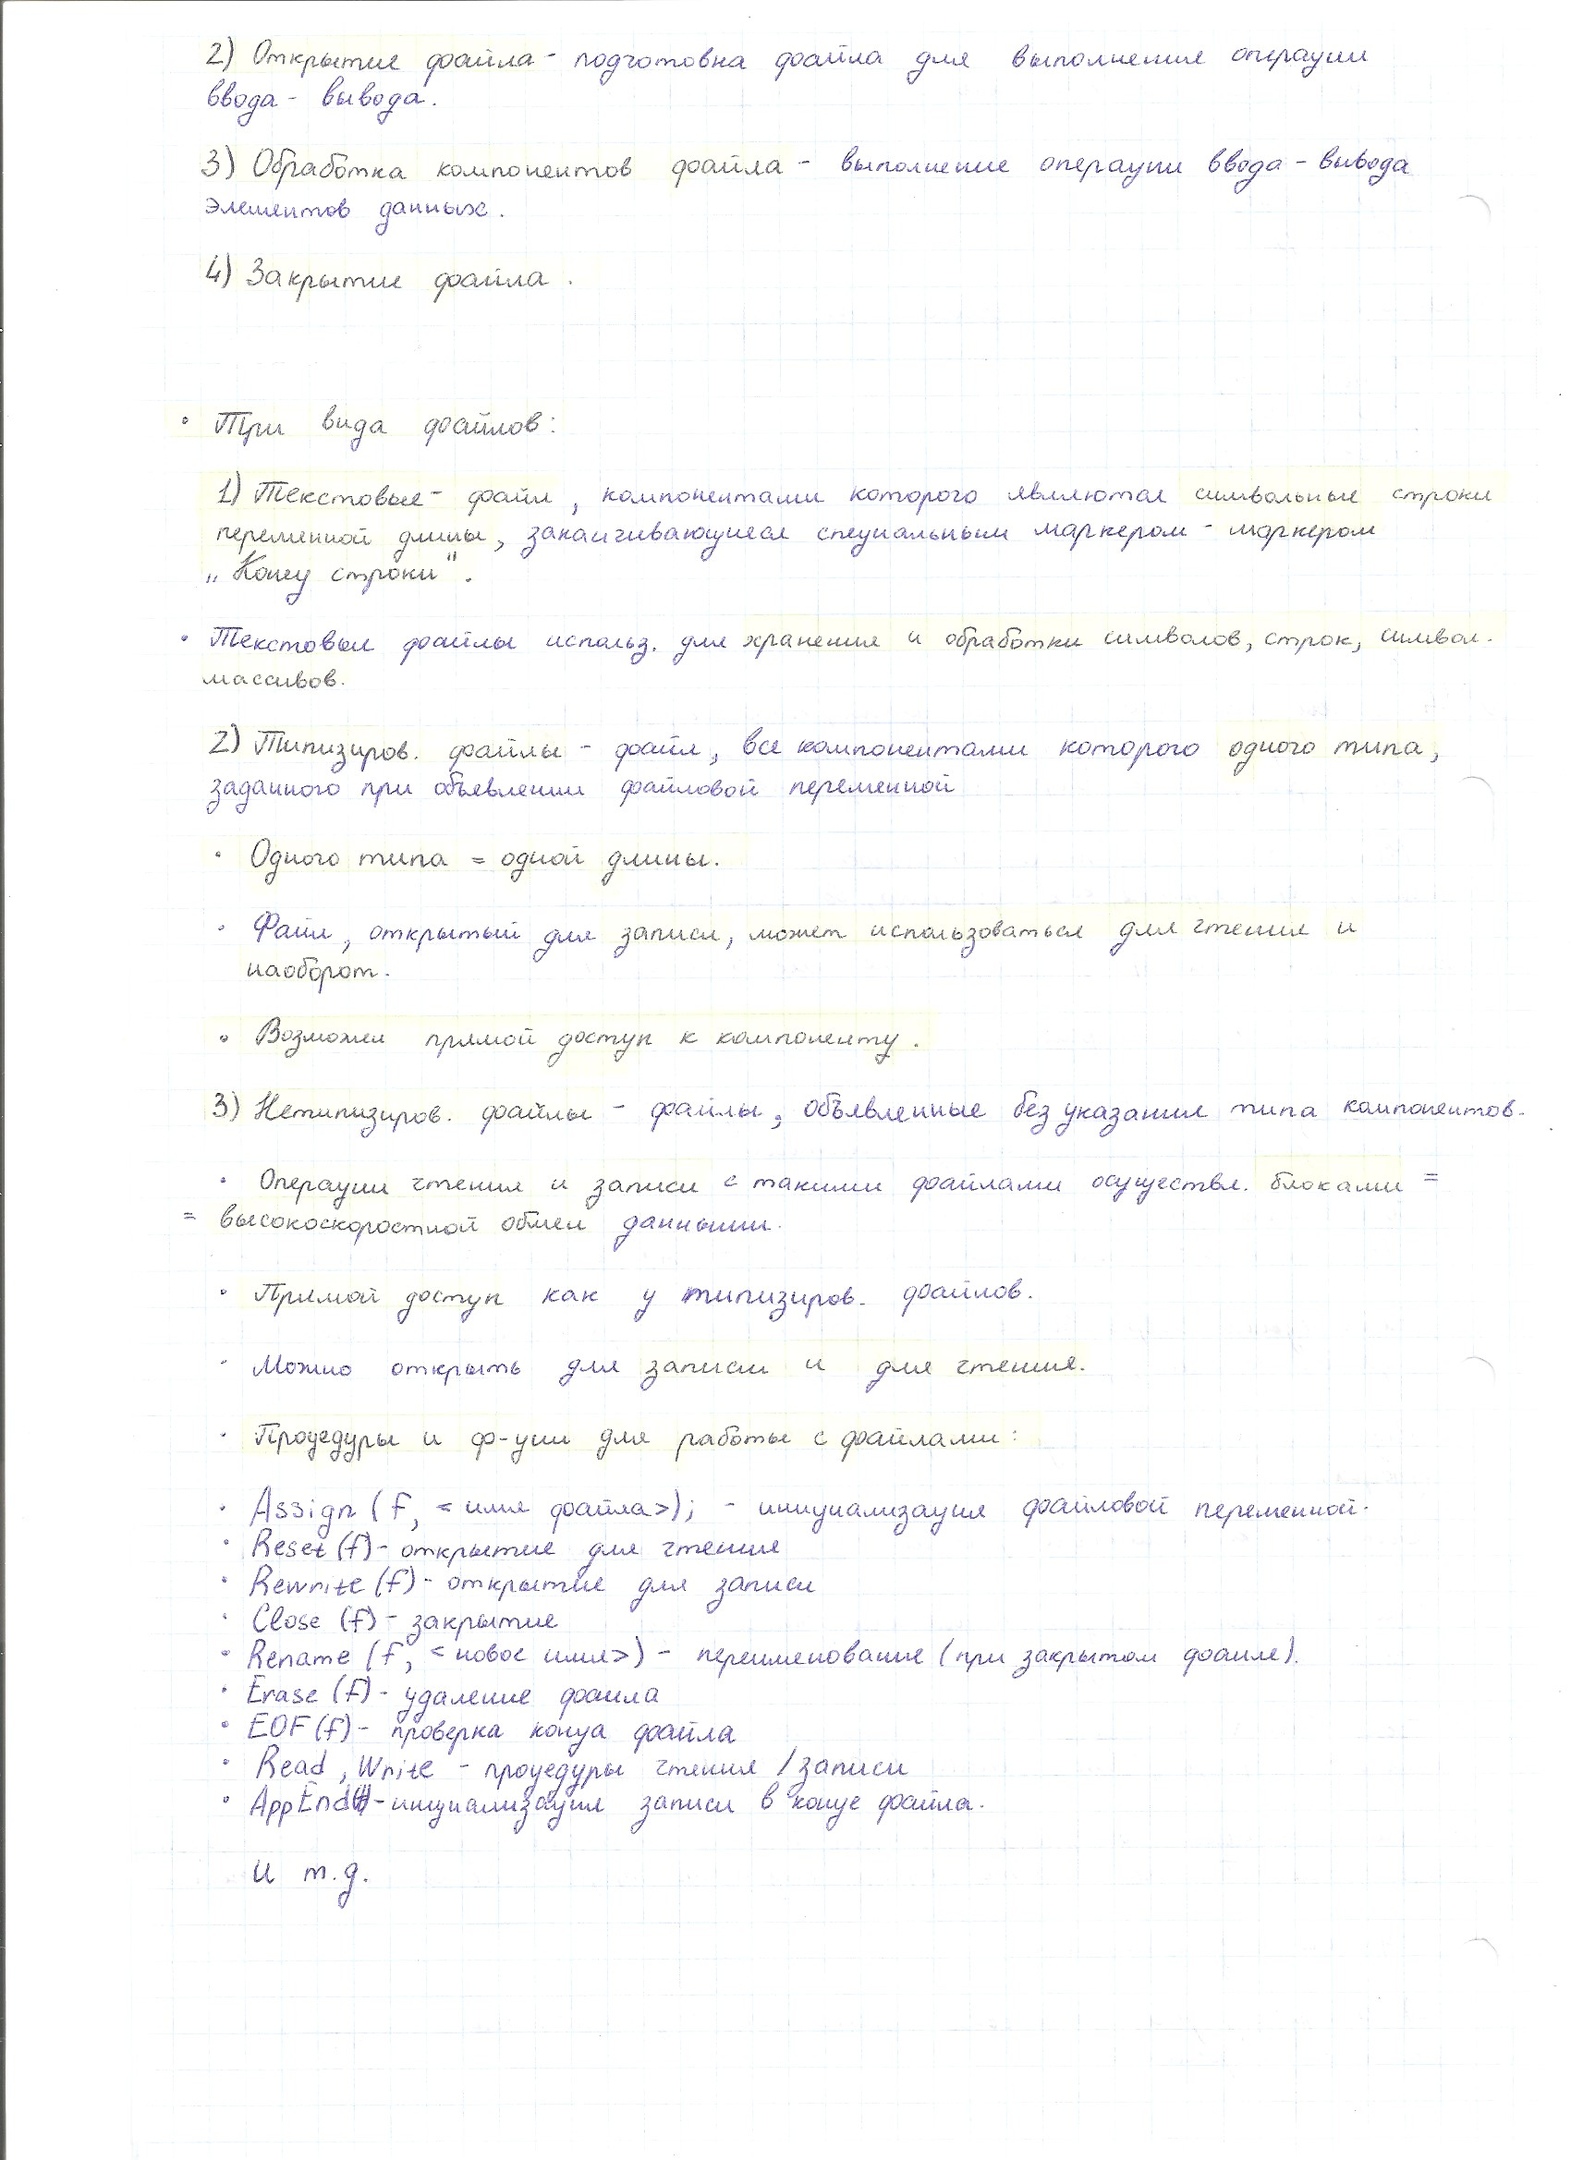 2) Открытие файла - подготовка файла для выполнения операции
ввода - вывода.
3) Обработка компонентов файла - выполнение операции ввода - вывода
элементов данных.
4) Закрытие файла.
• Три вида файлов:
1) Текстовые - файл, компонентами которого являются символьные строки
переменной длины, заканчивающиеся специальным маркером - маркером
„Конец строки".
• Текстовые файлы использ. для хранения и обработки символов, строк, символ.
массивов.
2) Типизиров. файлы - файл, все компонентами которого одного типа,
заданного при объявлении файловой переменной
• Одного типа = одной длины.
• Файл, открытый для записи, может использоваться для чтения и
наоборот.
• Возможен прямой доступ к компоненту.
3) Нетипизиров. файлы - файлы, объявленные без указания типа компонентов.
• Операции чтения и записи с такими файлами осуществл. блоками =
= высокоскоростной обмен данными.
• Прямой доступ как у типизиров. файлов.
• Можно открыть для записи и для чтения.
• Процедуры и ф-ции для работы с файлами:
• Assign (f, <имя файла>); - инициализация файловой переменной.
• Reset (f) - открытие для чтения
• Rewrite (f) - открытие для записи
• Close (f) - закрытие
• Rename (f, <новое имя>) - переименование (при закрытом файле).
• Erase (f) - удаление файла
• EOF (f) - проверка конца файла
• Read, Write - процедуры чтения / записи
• AppEnd - инициализация записи в конце файла.
и т.д.